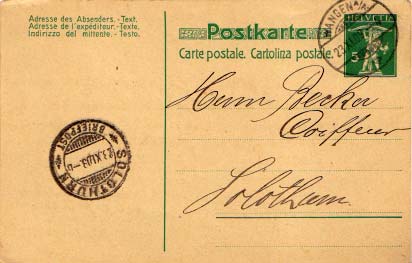 Adresse des Absenders. - Text.
Adresse de l'expéditeur. - Texte.
Indirizzo del mittente. - Testo.
Postkarte
Carte postale. Cartolina postale.
HELVETIA
5
WANGEN
Herrn Becker
Coiffeur
Solothurn
SOLOTHURN
BRIEFPOST